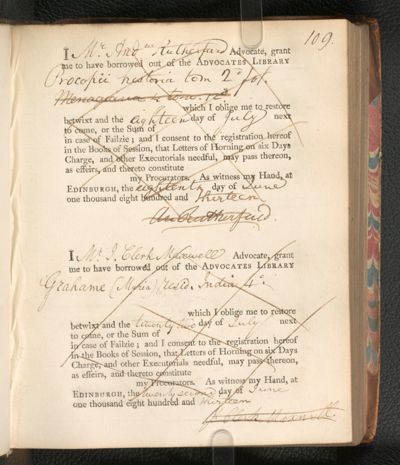 109.
I Mr. And.w Rutherfurd Advocate, grant
me to have borrowed out of the ADVOCATES LIBRARY
Procopii historia tom 2d fol.
which I oblige me to restore
betwixt and the eighteen day of July next
to come, or the Sum of
in case of Failzie ; and I consent to the registration hereof
in the Books of Session, that Letters of Horning on six Days
Charge, and other Executorials needful, may pass thereon,
as effeirs, and thereto constitute
my Procurators. As witness my Hand, at
EDINBURGH, the eighteenth day of June
one thousand eight hundred and thirteen
And. Rutherfurd.
I Mr. J. Clerk Maxwell Advocate, grant
me to have borrowed out of the ADVOCATES LIBRARY
Grahame (Maria) resid. India 4o.
which I oblige me to restore
betwixt and the twenty two day of July next
to come, or the Sum of
in case of Failzie ; and I consent to the registration hereof
in the Books of Session, that Letters of Horning on six Days
Charge, and other Executorials needful, may pass thereon,
as effeirs, and thereto constitute
my Procurators. As witness my Hand, at
EDINBURGH, the twenty second day of June
one thousand eight hundred and thirteen
J. Clerk Maxwell.